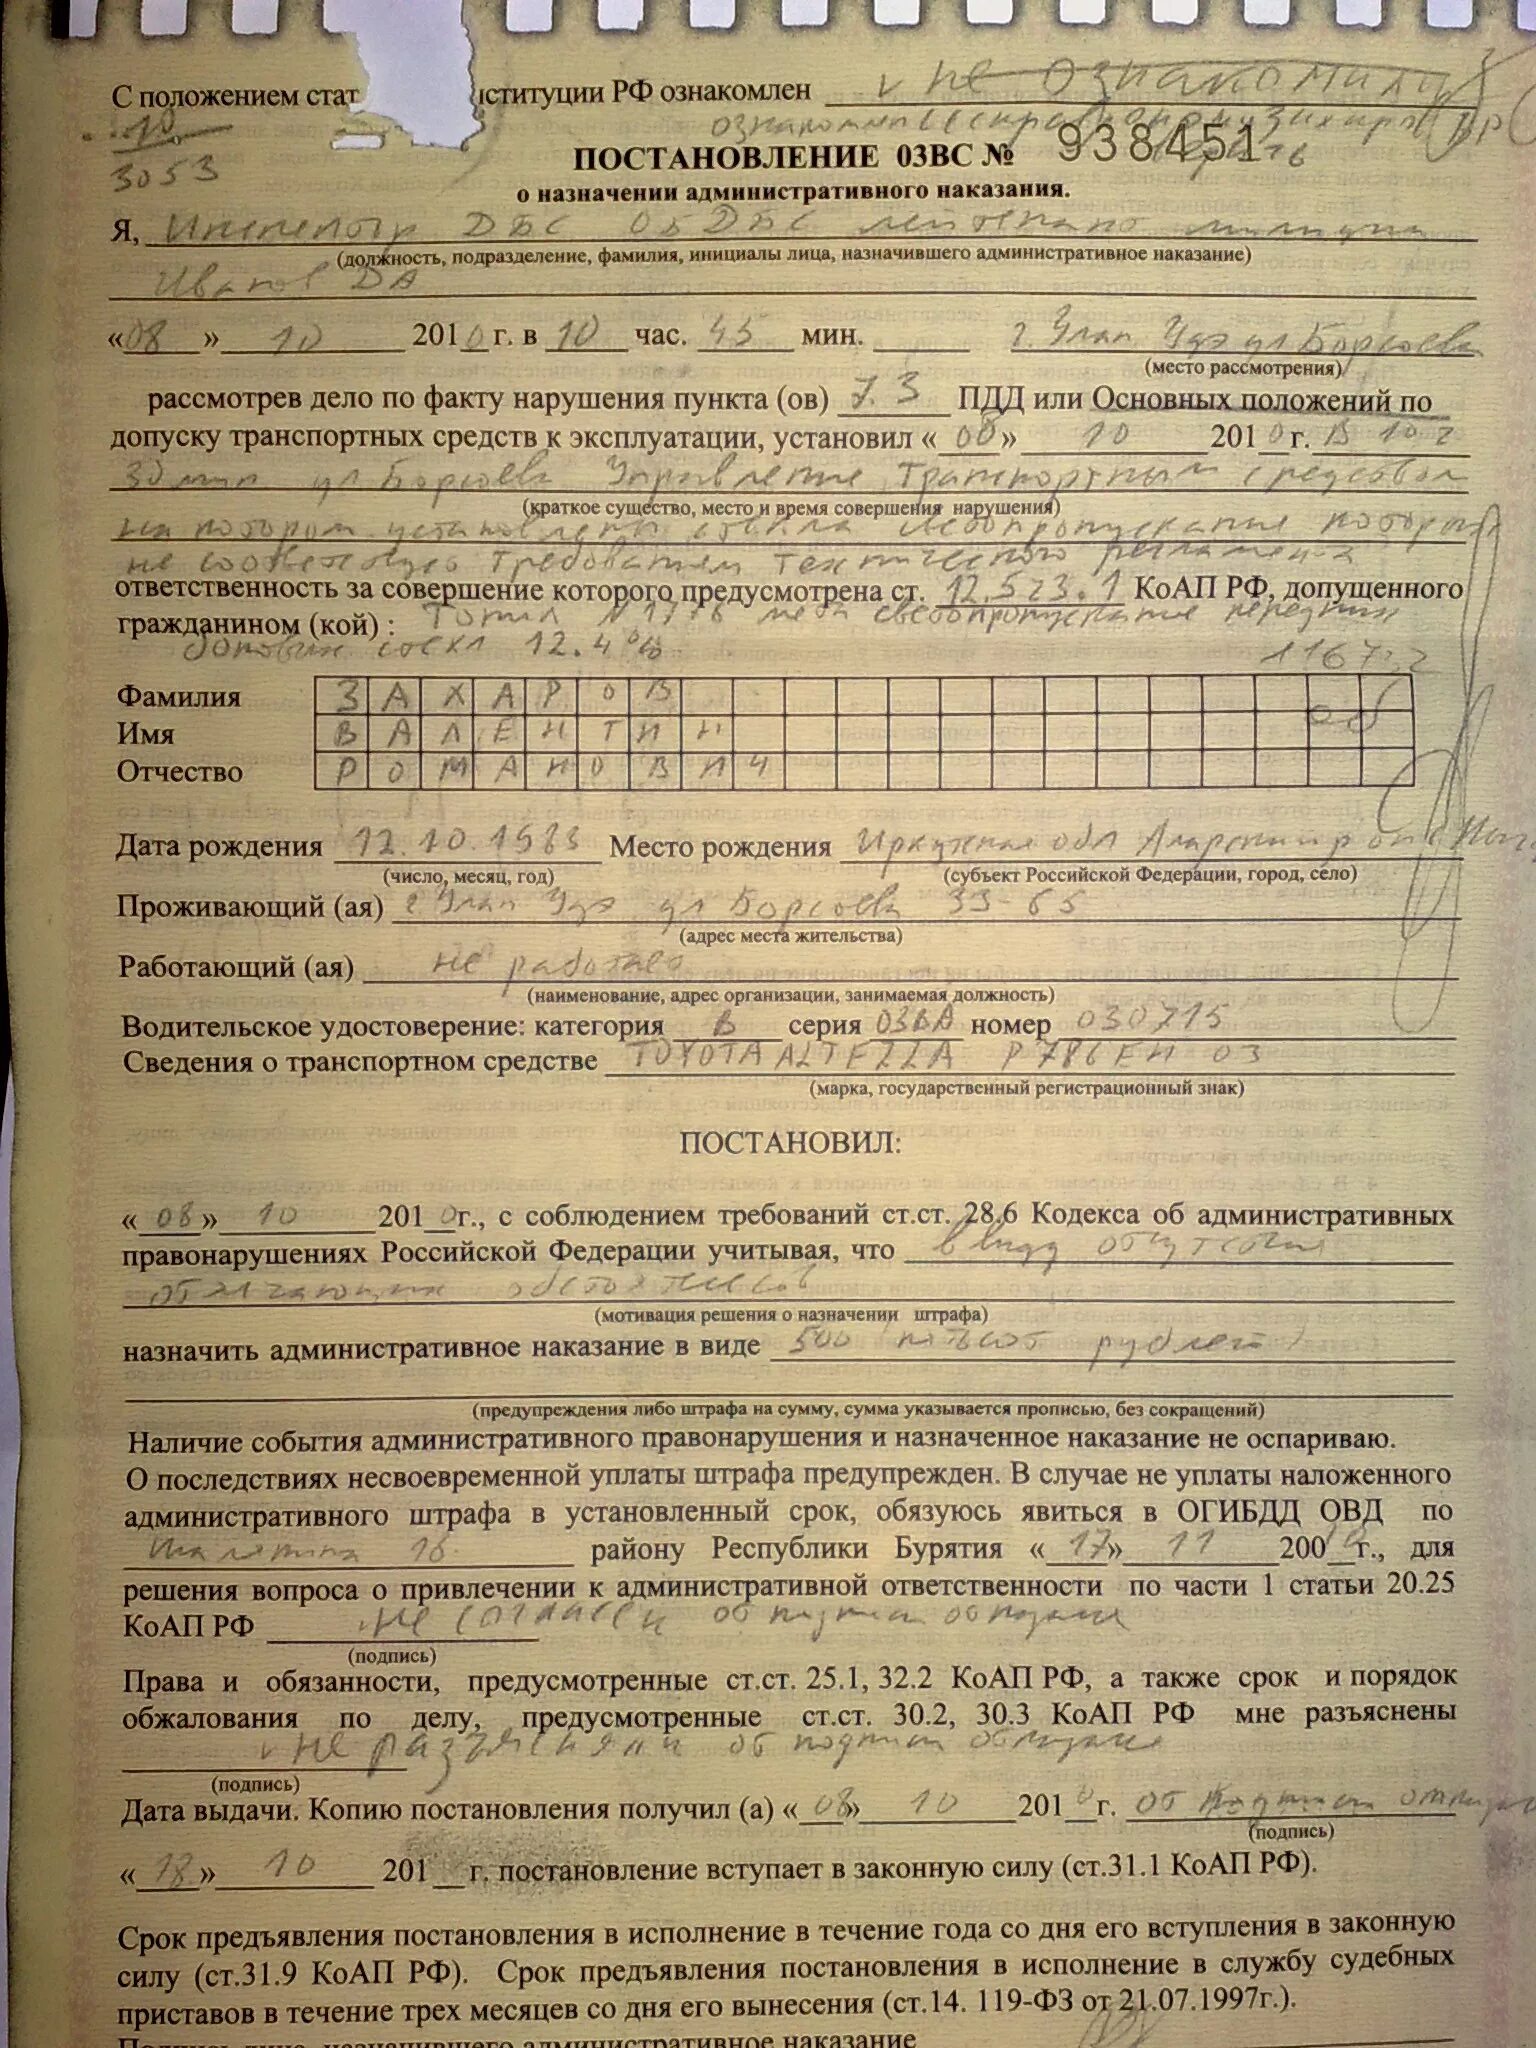 С положением стат нституции РФ ознакомлен не ознакомили
10
3053
ПОСТАНОВЛЕНИЕ 03ВС № 938451
о назначении административного наказания.
Я, Инспектор ДБС ОБДБС лейтенант милиции
(должность, подразделение, фамилия, инициалы лица, назначившего административное наказание)
Иванов ДА
«08» 10 2010 г. в 10 час. 45 мин. г. Улан Удэ ул Борсоева
(место рассмотрения)
рассмотрев дело по факту нарушения пункта (ов) 7.3 ПДД или Основных положений по
допуску транспортных средств к эксплуатации, установил «08» 10 2010 г. в 10 ч
30 мин ул Борсоева Управление транспортным средством
(краткое существо, место и время совершения нарушения)
на котором установлены стекла светопропускание которых
не соответствуют требованиям технического регламента
ответственность за совершение которого предусмотрена ст. 12.5 ч 3.1 КоАП РФ, допущенного
гражданином (кой) : Тоник светопропускание передних
боковых стекл 12.4%
Фамилия ЗАХАРОВ
Имя ВАЛЕНТИН
Отчество РОМАНОВИЧ
Дата рождения 12.10.1983 Место рождения Иркутская обл Аларский р он
(число, месяц, год) (субъект Российской Федерации, город, село)
Проживающий (ая) г Улан Удэ ул Борсоева 33-65
(адрес места жительства)
Работающий (ая) не работает
(наименование, адрес организации, занимаемая должность)
Водительское удостоверение: категория В серия 03ВА номер 030715
Сведения о транспортном средстве TOYOTA ALTEZZA Р786ЕН 03
(марка, государственный регистрационный знак)
ПОСТАНОВИЛ:
«08» 10 2010г., с соблюдением требований ст.ст. 28.6 Кодекса об административных
правонарушениях Российской Федерации учитывая, что ввиду отсутствия
отягчающих обстоятельств
(мотивация решения о назначении штрафа)
назначить административное наказание в виде 500 пятьсот рублей
(предупреждения либо штрафа на сумму, сумма указывается прописью, без сокращений)
Наличие события административного правонарушения и назначенное наказание не оспариваю.
О последствиях несвоевременной уплаты штрафа предупрежден. В случае не уплаты наложенного
административного штрафа в установленный срок, обязуюсь явиться в ОГИБДД ОВД по
16 району Республики Бурятия «17» 11 200 г., для
решения вопроса о привлечении к административной ответственности по части 1 статьи 20.25
КоАП РФ не согласен от подписи отказался
(подпись)
Права и обязанности, предусмотренные ст.ст. 25.1, 32.2 КоАП РФ, а также срок и порядок
обжалования по делу, предусмотренные ст.ст. 30.2, 30.3 КоАП РФ мне разъяснены
не разъяснили от подписи отказался
(подпись)
Дата выдачи. Копию постановления получил (а) «08» 10 2010г. от подписи отказался
(подпись)
«18» 10 201 г. постановление вступает в законную силу (ст.31.1 КоАП РФ).
Срок предъявления постановления в исполнение в течение года со дня его вступления в законную
силу (ст.31.9 КоАП РФ). Срок предъявления постановления в исполнение в службу судебных
приставов в течение трех месяцев со дня его вынесения (ст.14. 119-ФЗ от 21.07.1997г.).
Подпись лица, назначившего административное наказание